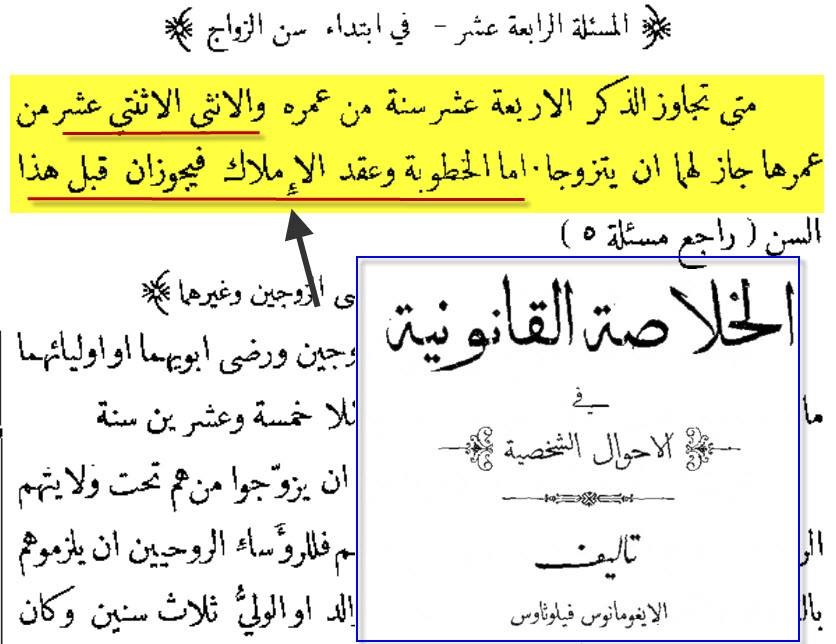 المسئلة الرابعة عشر - في ابتداء سن الزواج
متي تجاوز الذكر الاربعة عشر سنة من عمره والانثى الاثنتي عشر من
عمرها جاز لهما ان يتزوجا. اما الخطوبة وعقد الإملاك فيجوزان قبل هذا
السن ( راجع مسئلة ٥ )
ى الزوجين وغيرهما
وجين ورضى ابويهما او اوليائهما
ما
ثلا خمسة وعشرين سنة
ان يزوّجوا من هم تحت ولايتهم
م فللرؤَساء الروحيين ان يلزموهم
الد او الوليُّ ثلاث سنين وكان
الخلاصة القانونية
في
الاحوال الشخصية
تاليف
الايغومانوس فيلوثاوس